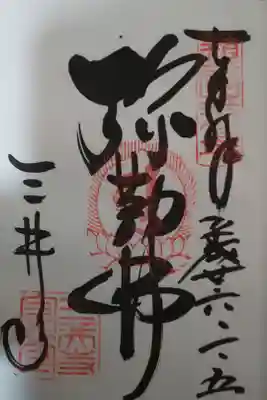 奉拝 平成廿六・二・五
弥勒佛
三井寺